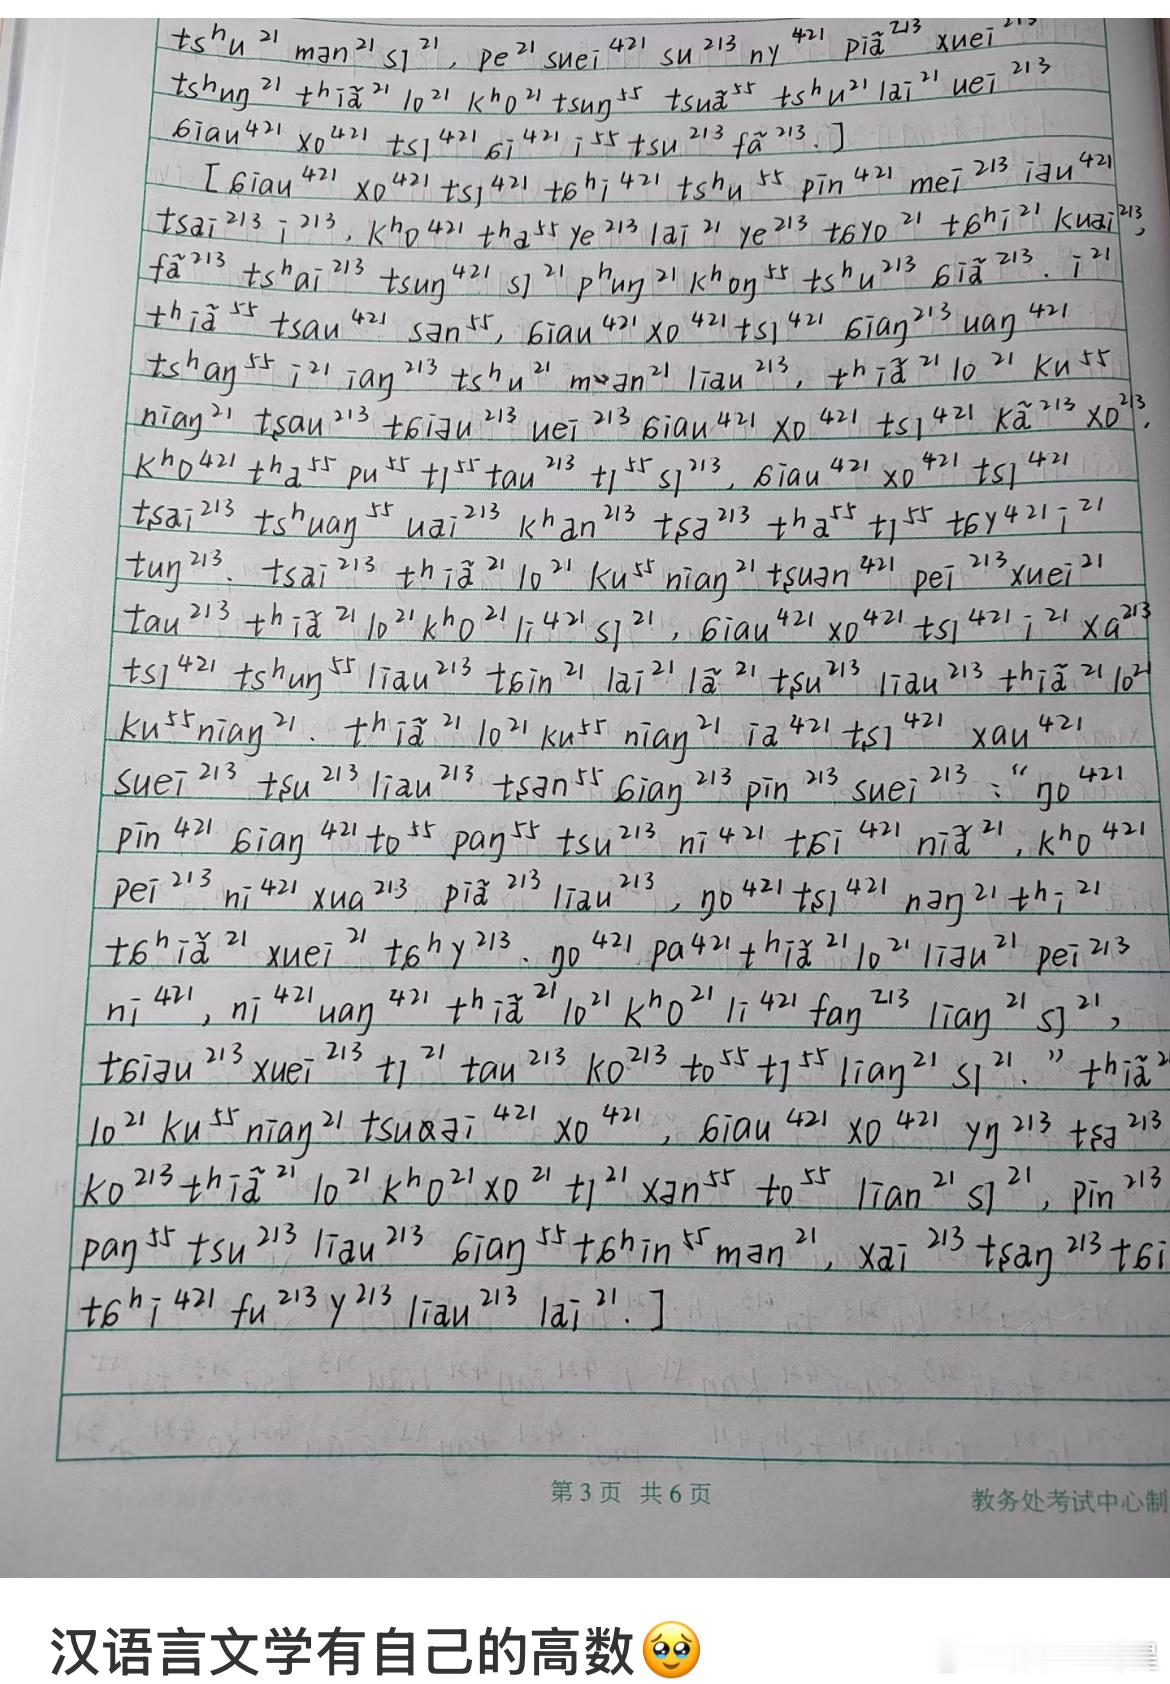 tsʰu²¹ mən²¹ sɿ²¹, pe²¹ suei⁴²¹ su²¹³ ny⁴²¹ piã²¹³ xuei²¹³
tsʰuŋ²¹ tʰiã²¹ lo²¹ kʰo²¹ tsuŋ⁵⁵ tsuã⁵⁵ tsʰu²¹ lai²¹ uei²¹³
ɕiau⁴²¹ xo⁴²¹ tsɿ⁴²¹ ɕi⁴²¹ i⁵⁵ tsu²¹³ fã²¹³.]
[ɕiau⁴²¹ xo⁴²¹ tsɿ⁴²¹ tɕʰi⁴²¹ tsʰu⁵⁵ pin⁴²¹ mei²¹³ iəu⁴²¹
tsai²¹³ i²¹³, kʰo⁴²¹ tʰa⁵⁵ ye²¹³ lai²¹ ye²¹³ tɕyo²¹ tɕʰi²¹ kuai²¹³,
fã²¹³ tsʰai²¹³ tsuŋ⁴²¹ sɿ²¹ pʰuŋ²¹ kʰoŋ⁵⁵ tsʰu²¹³ ɕiã²¹³. i²¹
tʰiã⁵⁵ tsau⁴²¹ sən⁵⁵, ɕiau⁴²¹ xo⁴²¹ tsɿ⁴²¹ ɕiaŋ²¹³ uaŋ⁴²¹
tsʰaŋ⁵⁵ i²¹ iaŋ²¹³ tsʰu²¹ mən²¹ liau²¹³, tʰiã²¹ lo²¹ ku⁵⁵
niaŋ²¹ tʂau²¹³ tɕiəu²¹³ uei²¹³ ɕiau⁴²¹ xo⁴²¹ tsɿ⁴²¹ kã²¹³ xo²¹³,
kʰo⁴²¹ tʰa⁵⁵ pu⁵⁵ tɿ⁵⁵ tau²¹³ tɿ⁵⁵ sɿ²¹³, ɕiau⁴²¹ xo⁴²¹ tsɿ⁴²¹
tʂai²¹³ tsʰuaŋ⁵⁵ uai²¹³ kʰan²¹³ tʂə²¹³ tʰa⁵⁵ tɿ⁵⁵ tɕy⁴²¹ i²¹
tuŋ²¹³. tsai²¹³ tʰiã²¹ lo²¹ ku⁵⁵ niaŋ²¹ tʂuan⁴²¹ pei²¹³ xuei²¹
tau²¹³ tʰiã²¹ lo²¹ kʰo²¹ li⁴²¹ sɿ²¹, ɕiau⁴²¹ xo⁴²¹ tsɿ⁴²¹ i²¹ xa²¹³
tsɿ⁴²¹ tsʰuŋ⁵⁵ liau²¹³ tɕin²¹ lai²¹ lã²¹ tʂu²¹³ liau²¹³ tʰiã²¹ lo²¹
ku⁵⁵ niaŋ²¹. tʰiã²¹ lo²¹ ku⁵⁵ niaŋ²¹ ia⁴²¹ tsɿ⁴²¹ xau⁴²¹
suei²¹³ tʂu²¹³ liau²¹³ tʂən⁵⁵ ɕiaŋ²¹³ pin²¹³ suei²¹³ : “ŋo⁴²¹
pin⁴²¹ ɕiaŋ⁴²¹ to⁵⁵ paŋ⁵⁵ tsu²¹³ ni⁴²¹ tɕi⁴²¹ niã²¹, kʰo⁴²¹
pei²¹³ ni⁴²¹ xua²¹³ piã²¹³ liau²¹³, ŋo⁴²¹ tsɿ⁴²¹ nəŋ²¹ tʰi²¹
tɕʰiã²¹ xuei²¹ tɕʰy²¹³. ŋo⁴²¹ pa⁴²¹ tʰiã²¹ lo²¹ liəu²¹ pei²¹³
ni⁴²¹, ni⁴²¹ uaŋ⁴²¹ tʰiã²¹ lo²¹ kʰo²¹ li⁴²¹ faŋ²¹³ liaŋ²¹ sɿ²¹,
tɕiəu²¹³ xuei²¹³ tɿ²¹ tau²¹³ ko²¹³ to⁵⁵ tɿ⁵⁵ liaŋ²¹ sɿ²¹.” tʰiã²
lo²¹ ku⁵⁵ niaŋ²¹ xo⁴²¹, ɕiau⁴²¹ xo⁴²¹ yŋ²¹³ tʂə²¹³
ko²¹³ tʰiã²¹ lo²¹ kʰo²¹ xo²¹ tɿ²¹ xən⁵⁵ to⁵⁵ lian²¹ sɿ²¹, pin²¹³
paŋ⁵⁵ tsu²¹³ liau²¹³ ɕiaŋ⁵⁵ tɕʰin⁵⁵ mən²¹, xai²¹³ tʂaŋ²¹³ tɕi
tɕʰi⁴²¹ fu²¹³ y²¹³ liau²¹³ lai²¹.]
第3页 共6页
教务处考试中心制
汉语言文学有自己的高数🥹